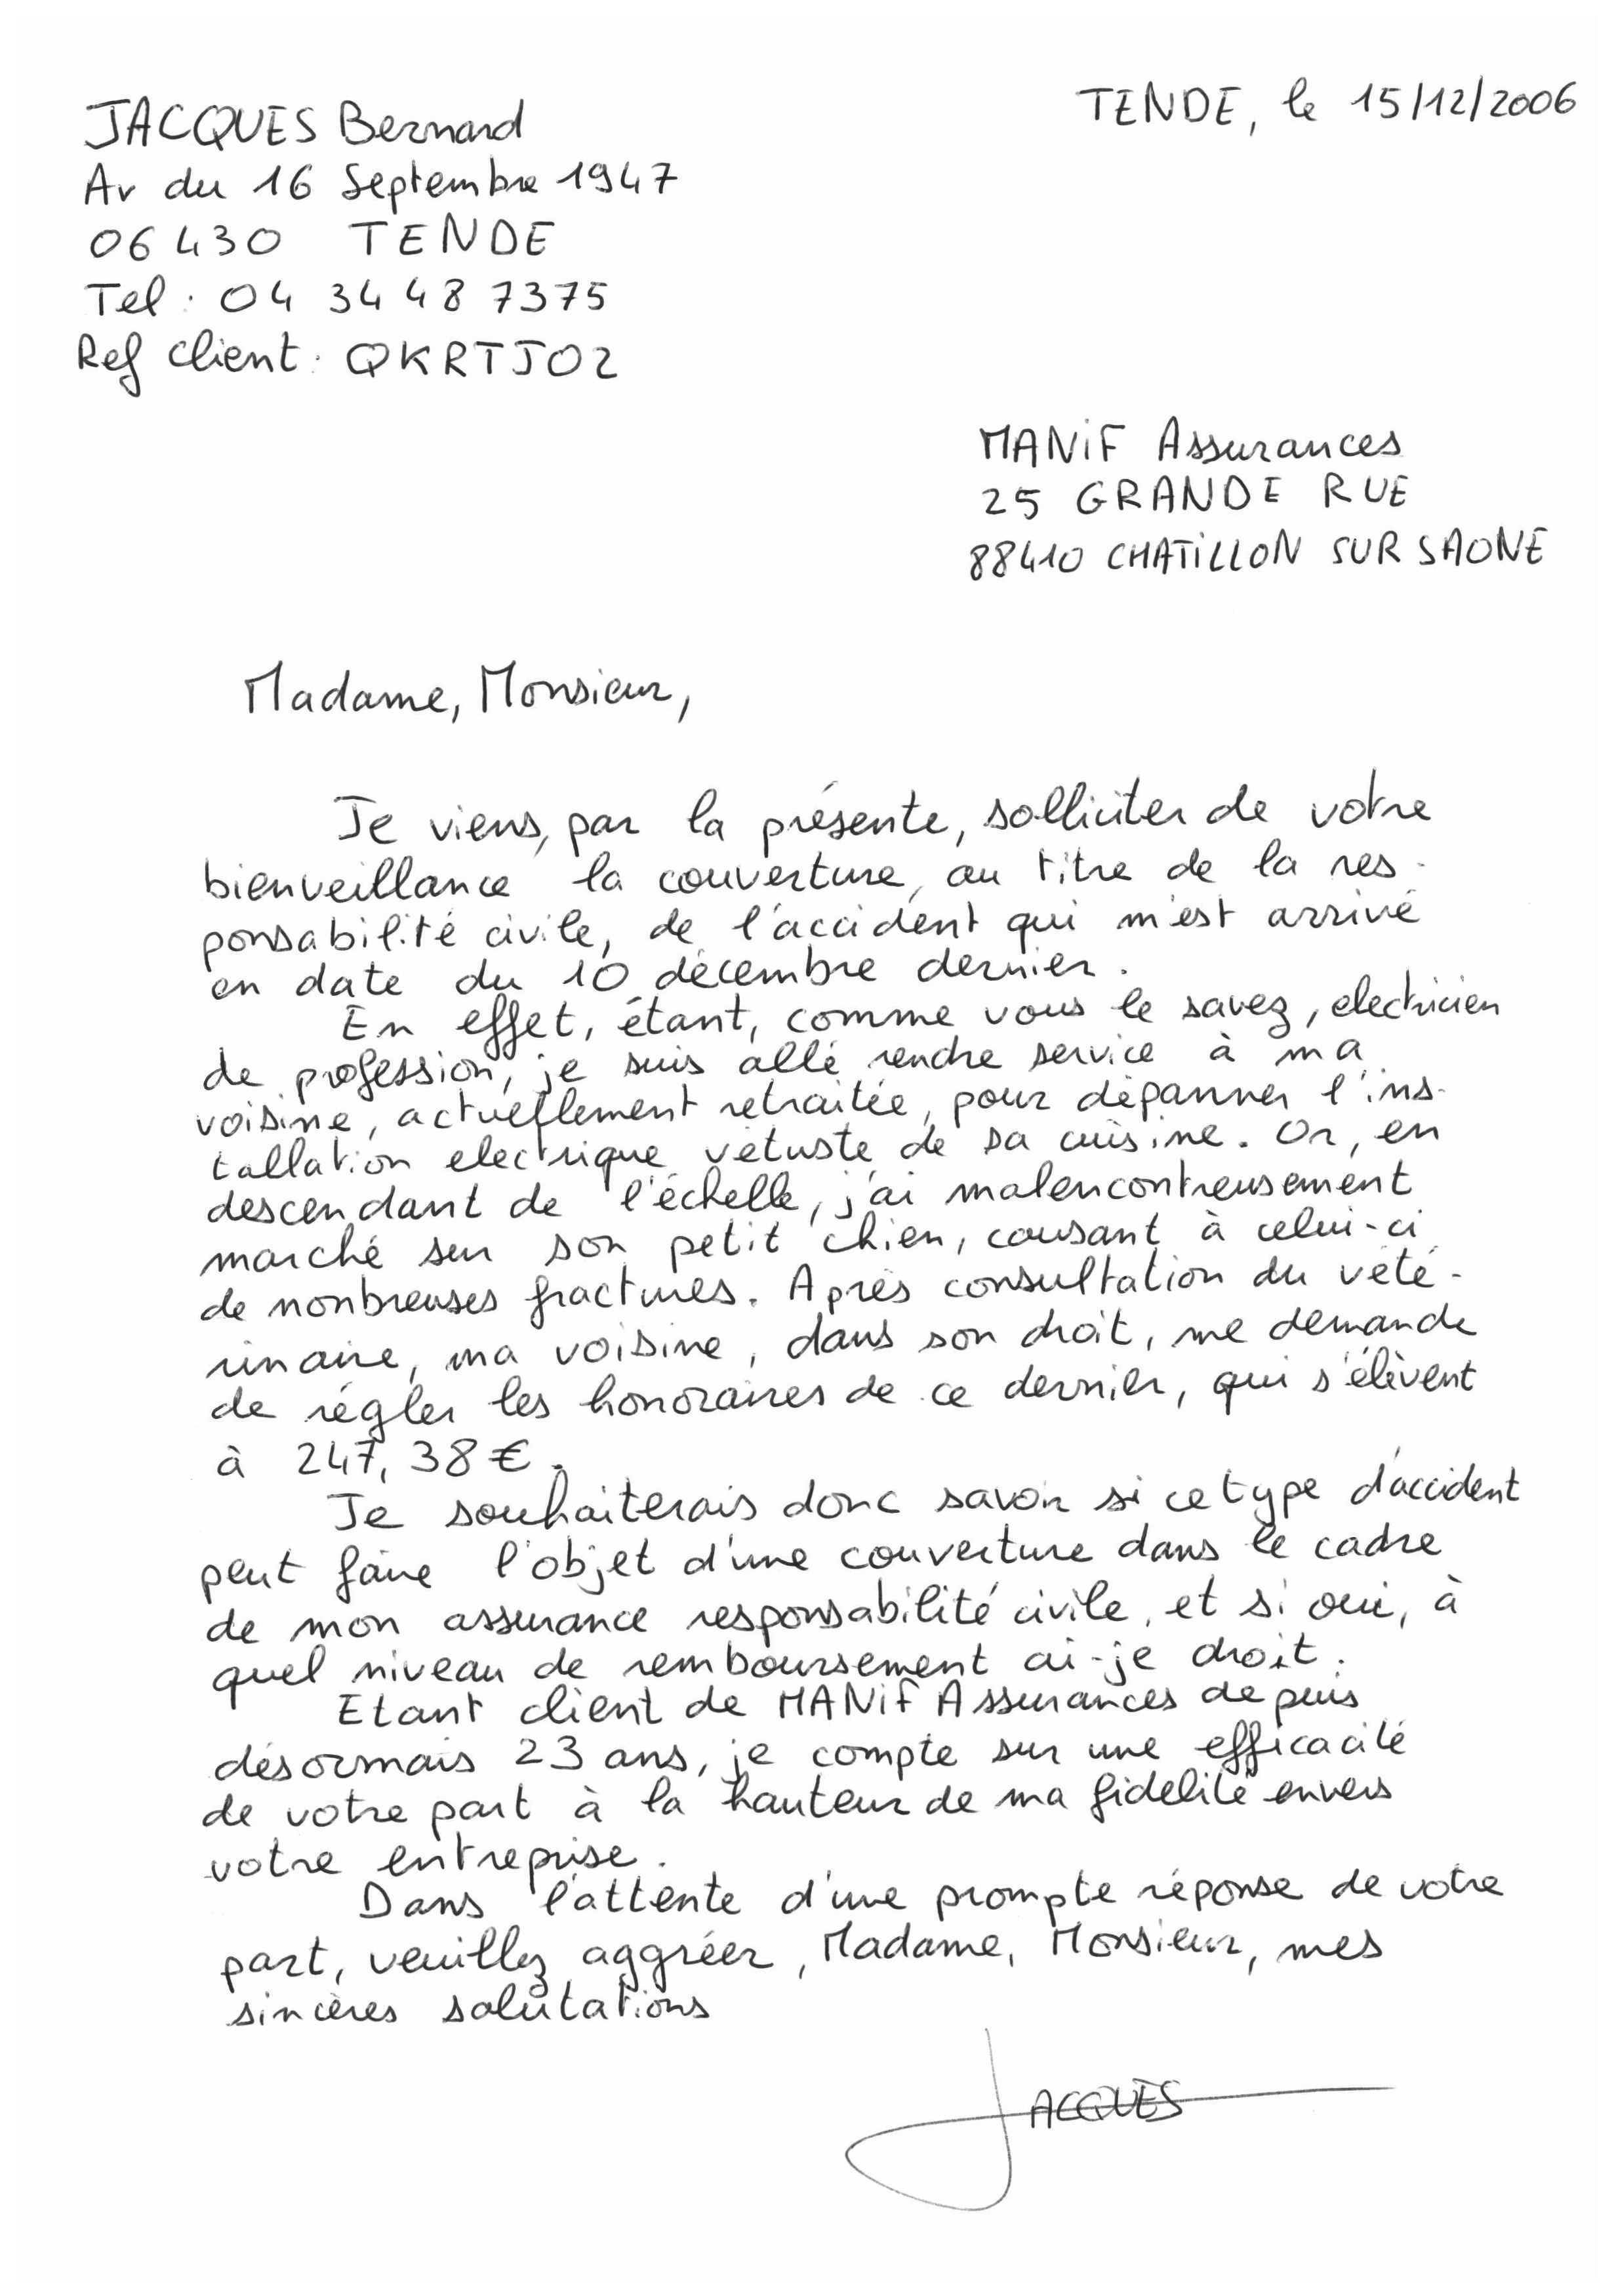 JACQUES Bernard
TENDE, le 15/12/2006
Av du 16 Septembre 1947
06430 TENDE
Tel : 04 34 48 7375
Ref client : QKRTJ02
MANiF Assurances
25 GRANDE RUE
88410 CHATiLLON SUR SAONE
Madame, Monsieur,
Je viens, par la présente, solliciter de votre
bienveillance la couverture, au titre de la res-
ponsabilité civile, de l'accident qui m'est arrivé
en date du 10 décembre dernier.
En effet, étant, comme vous le savez, electricien
de profession, je suis allé rendre service à ma
voisine, actuellement retraitée, pour dépanner l'ins-
tallation electrique vétuste de sa cuisine. Or, en
descendant de l'échelle, j'ai malencontreusement
marché sur son petit chien, causant à celui-ci
de nonbreuses fractures. Après consultation du vété-
rinaire, ma voisine, dans son droit, me demande
de régler les honoraires de ce dernier, qui s'élèvent
à 247,38€.
Je souhaiterais donc savoir si ce type d'accident
peut faire l'objet d'une couverture dans le cadre
de mon assurance responsabilité civile, et si oui, à
quel niveau de remboursement ai-je droit.
Etant client de MANiF Assurances depuis
désormais 23 ans, je compte sur une efficacité
de votre part à la hauteur de ma fidélité envers
votre entreprise.
Dans l'attente d'une prompte réponse de votre
part, veuillez aggréer, Madame, Monsieur, mes
sincères salutations
JACQUES